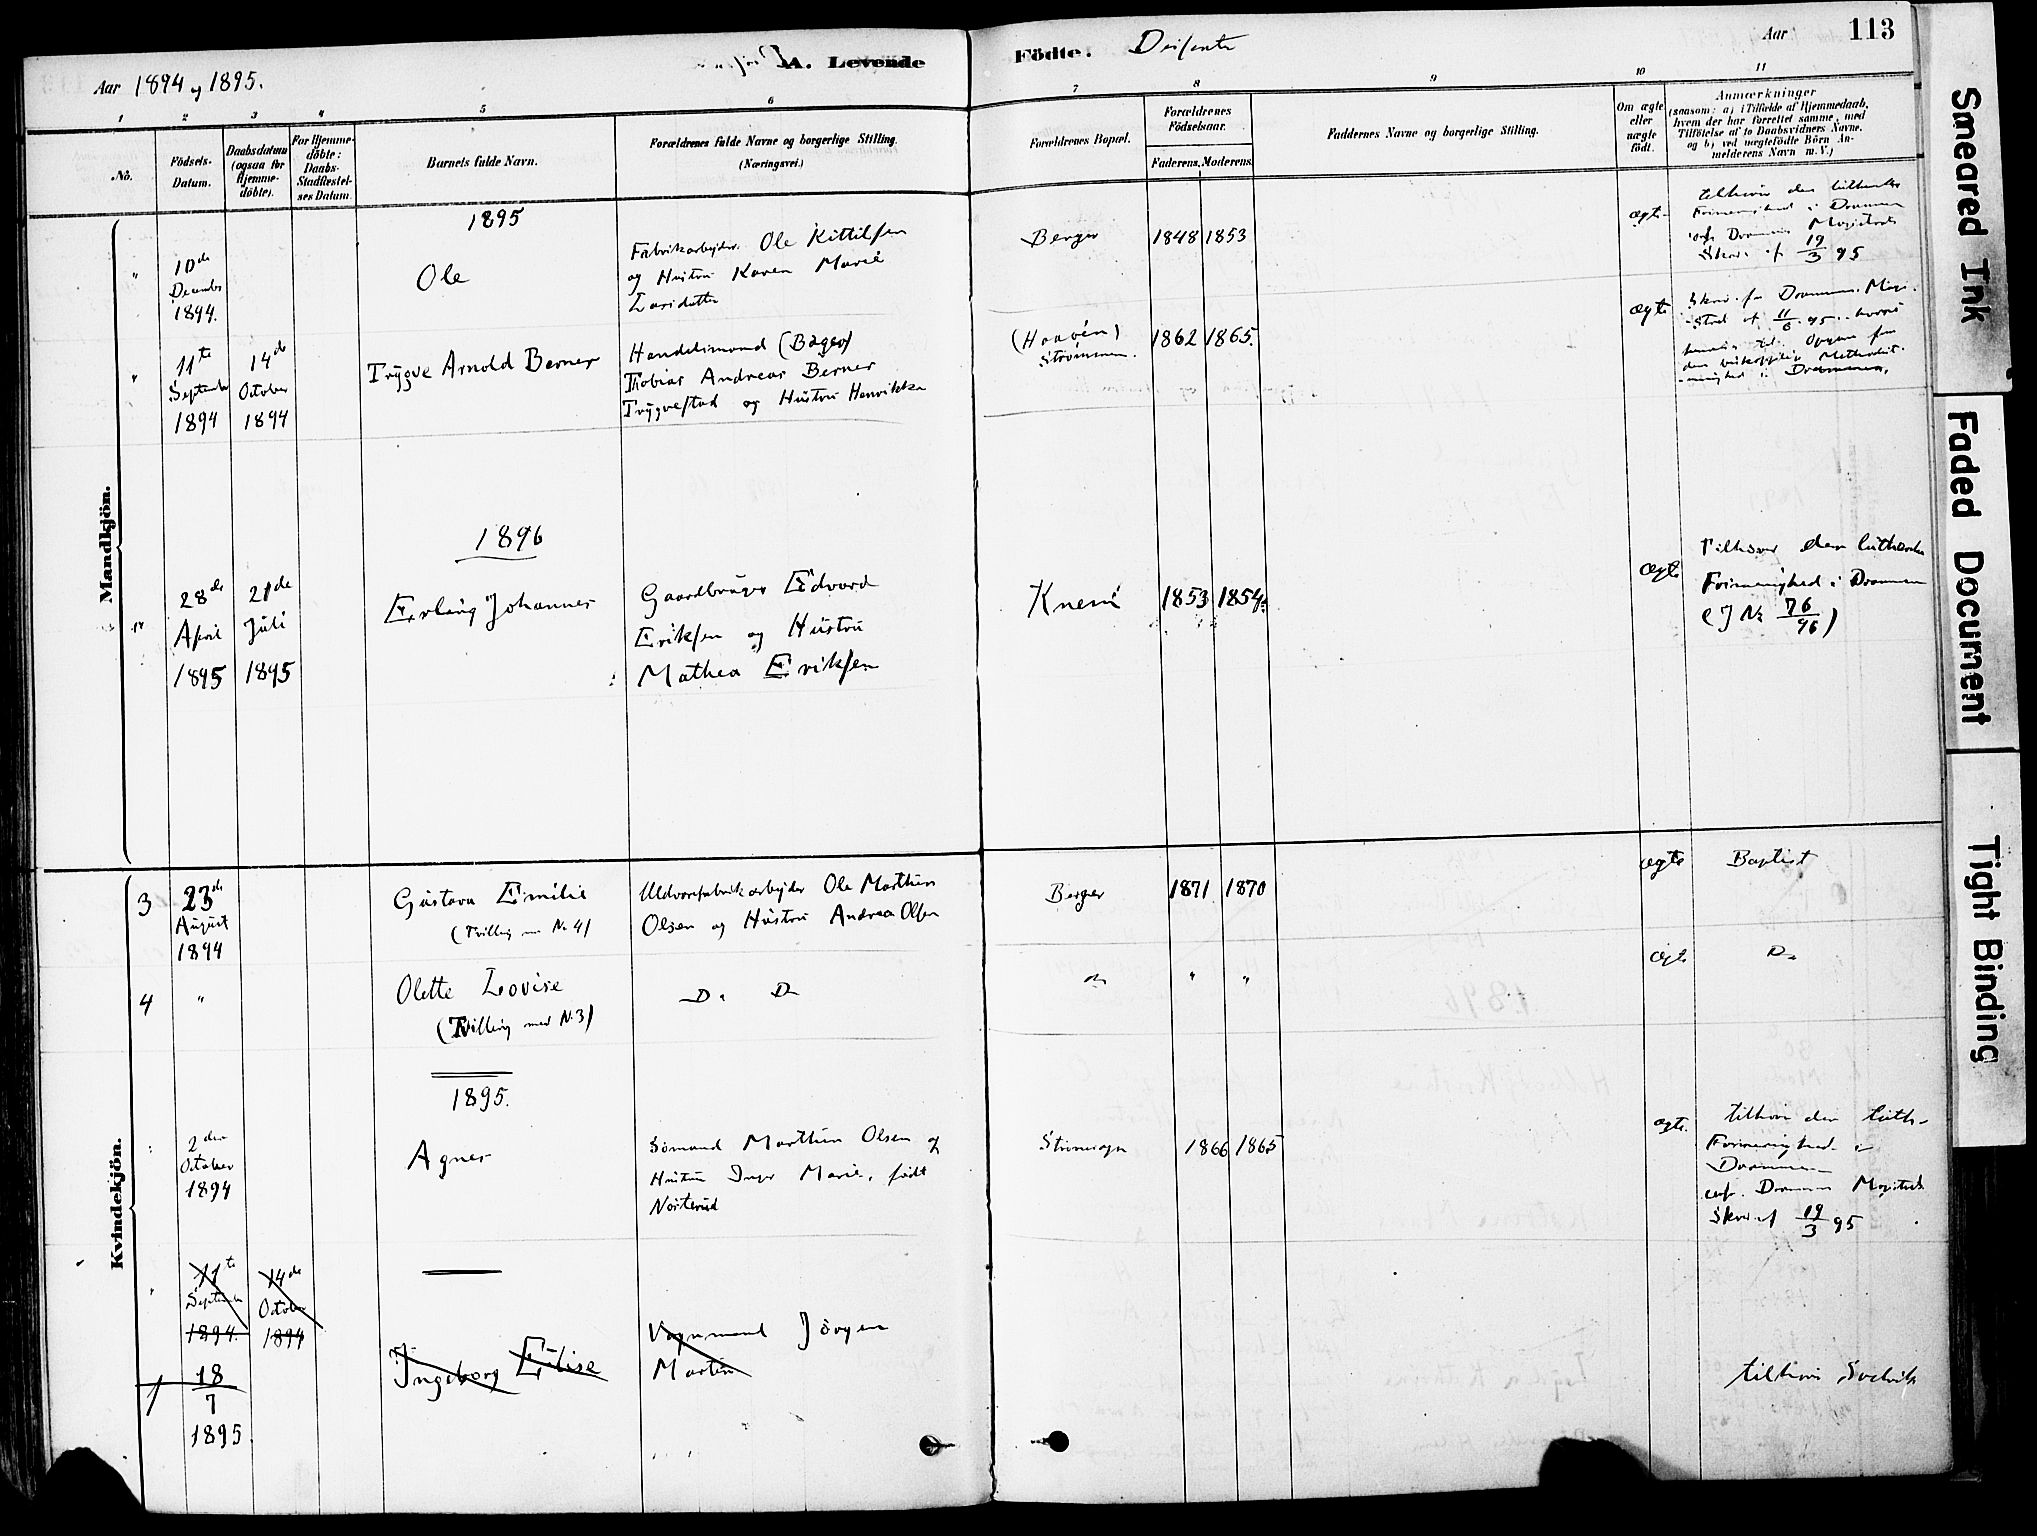 Aar 1894 og 1895.
A. Levende
Födte. Disenter
Aar
113
1
2
3
4
5
6
7
8
9
10
11
No.
Födsels-
Datum.
Daabsdatum
(ogsaa for
Hjemme-
döbte).
For Hjemme-
döbte:
Daabs-
Stadfæstel-
ses Datum
Barnets fulde Navn.
Forældrenes fulde Navne og borgerlige Stilling.
(Næringsvei.)
Forældrenes Bopæl.
Forældrenes
Födselsaar.
Faderens. Moderens.
Faddernes Navne og borgerlige Stilling.
Om ægte
eller
uægte
födt.
Anmærkninger
(saasom: a) i Tilfælde af Hjemmedaab,
hvem der har forrettet samme, med
Tilföielse af to Daabsvidners Navne.
og b) ved uægtefödte Börn An-
melderens Navn m. V.)
Mandkjön.
1895
" 10de
December
1894.
Ole
Fabrikarbejder Ole Kittilsen
og Hustru Karen Marie
Larsdatter
Berger
1848 1853
ægte
tilhører den lutherske
Frimenighed i Drammen
cfr Drammens Magistrats
Skriv. af 19/3 95
" 11te
September
1894
14de
October
1894
Trygve Arnold Berner
Handelsmand (Bager)
Thobias Andreas Berner
Trygvestad og Hustru Henrikka
(Haaøen)
Strømmen.
1862 1865.
ægte
Skriv. fra Drammens Magi-
strat af 11/6 95
Drammen.
1896
" 28de
April
1895
21de
Juli
1895
Erling Johannes
Gaardbruger Edvard
Eriksen og Hustru
Mathea Eriksen
Knem
1853 1854.
ægte
Tilhører den lutherske
Frimenighed i Drammen
(J No 76/96)
Kvindekjön.
3
23de
August
1894
Gustava Emilie
(Tvilling m No 4)
Uldvarefabrikarbejder Ole Marthin
Olsen og Hustru Andrea Olsen
Berger
1871 1870
ægte
Baptist
4
"
Olette Lovise
(Tvilling med N. 3)
Do Do
do
" "
ægte
Do
1895.
2den
October
1894
Agnes
Sömand Marthin Olsen og
Hustru Inger Marie, født
Nörterud
1866 1865
ægte.
tilhører den luth-
Frimenighed i
Drammen
cfr. Drammens Magistrats
Skriv. af 19/3 95
" 11te
September
1894.
14de
October
1894
1 18/7
1895.
Ingeborg Elise
Vognmand Jörgen
Martin
tilhører Svelvik
Smeared Ink
Faded Document
Tight Binding